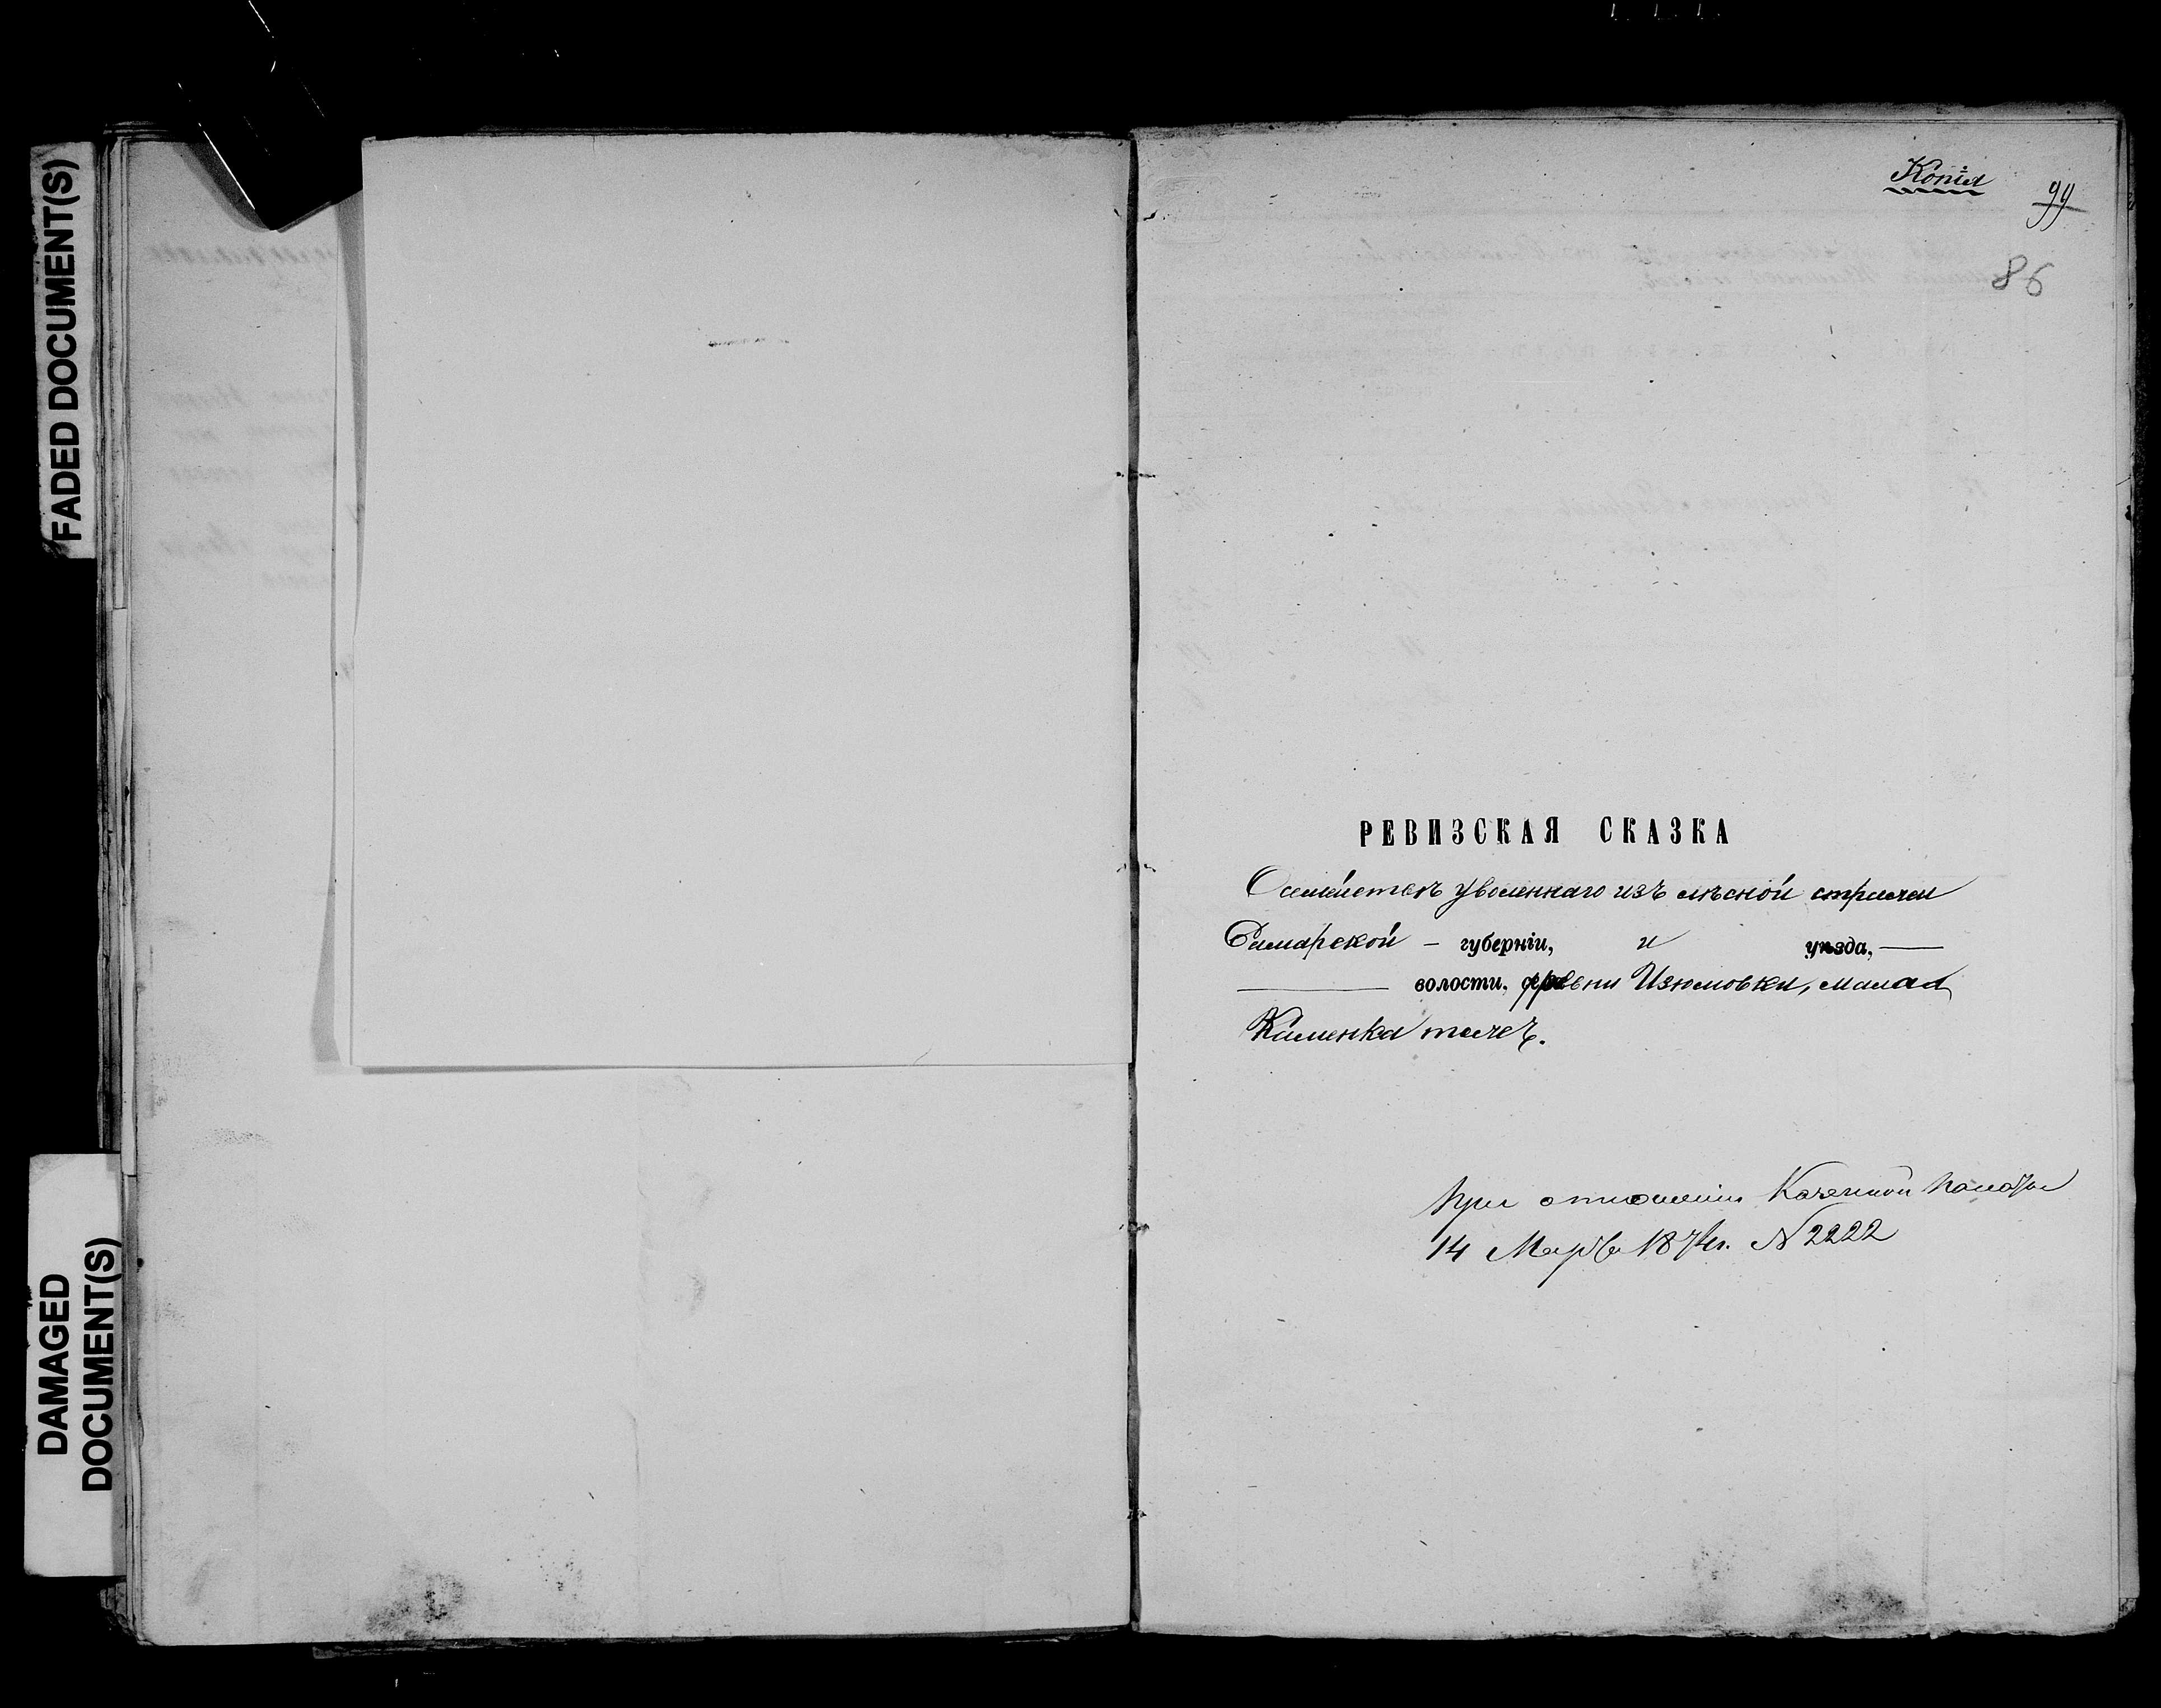 FADED DOCUMENT(S)
DAMAGED
DOCUMENT(S)
Копія
99
86
РЕВИЗСКАЯ СКАЗКА
О семействѣ уволеннаго изъ лѣсной стражи
Самарской — губерніи, и уѣзда, —
— волости, деревни Изюмовки, малая
Каменка тожъ.
При отношеніи Казенной палаты
14 Марта 187 г. N 2222